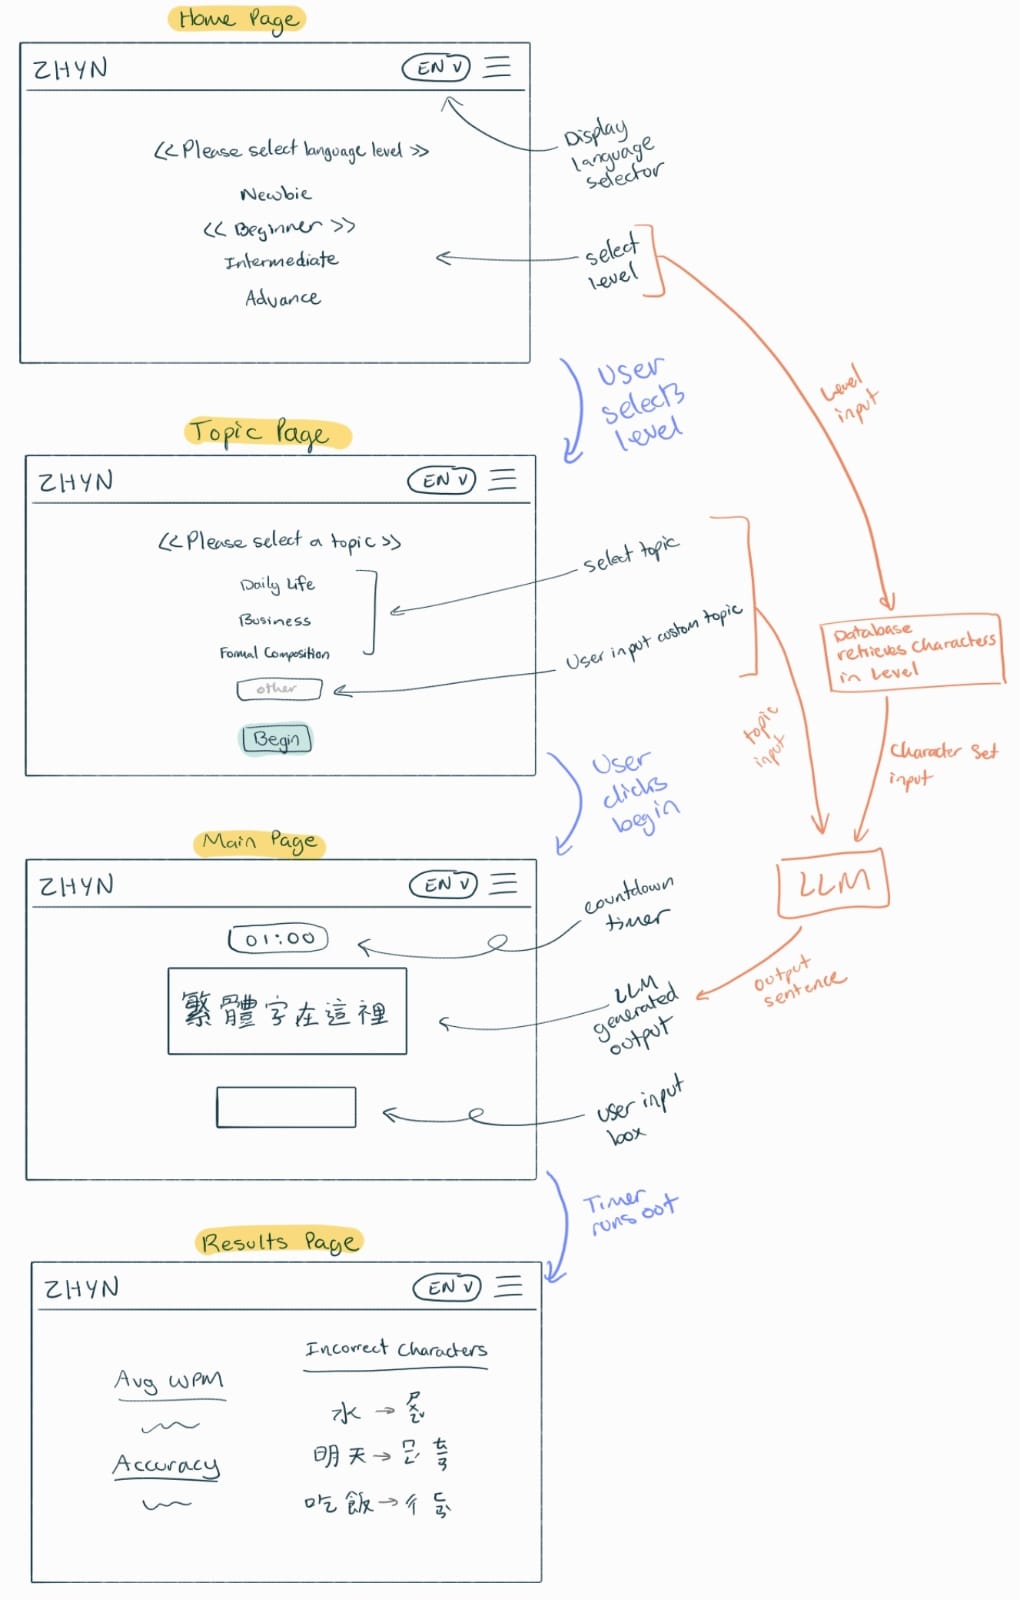 Home Page
ZHYN
EN V
<< Please select language level >>
Newbie
<< Beginner >>
Intermediate
Advance
Display
language
selector
select
level
User
selects
level
Level
input
Topic Page
ZHYN
EN V
<< Please select a topic >>
Daily Life
Business
Formal Composition
other
Begin
select topic
User input custom topic
Database
retrieves characters
in Level
topic
input
Character Set
input
User
clicks
begin
LLM
output
sentence
Main Page
ZHYN
EN V
01:00
繁體字在這裡
countdown
timer
LLM
generated
output
user input
box
Timer
runs out
Results Page
ZHYN
EN V
Avg WPM
Accuracy
Incorrect Characters
水 →
明天 →
吃飯 →